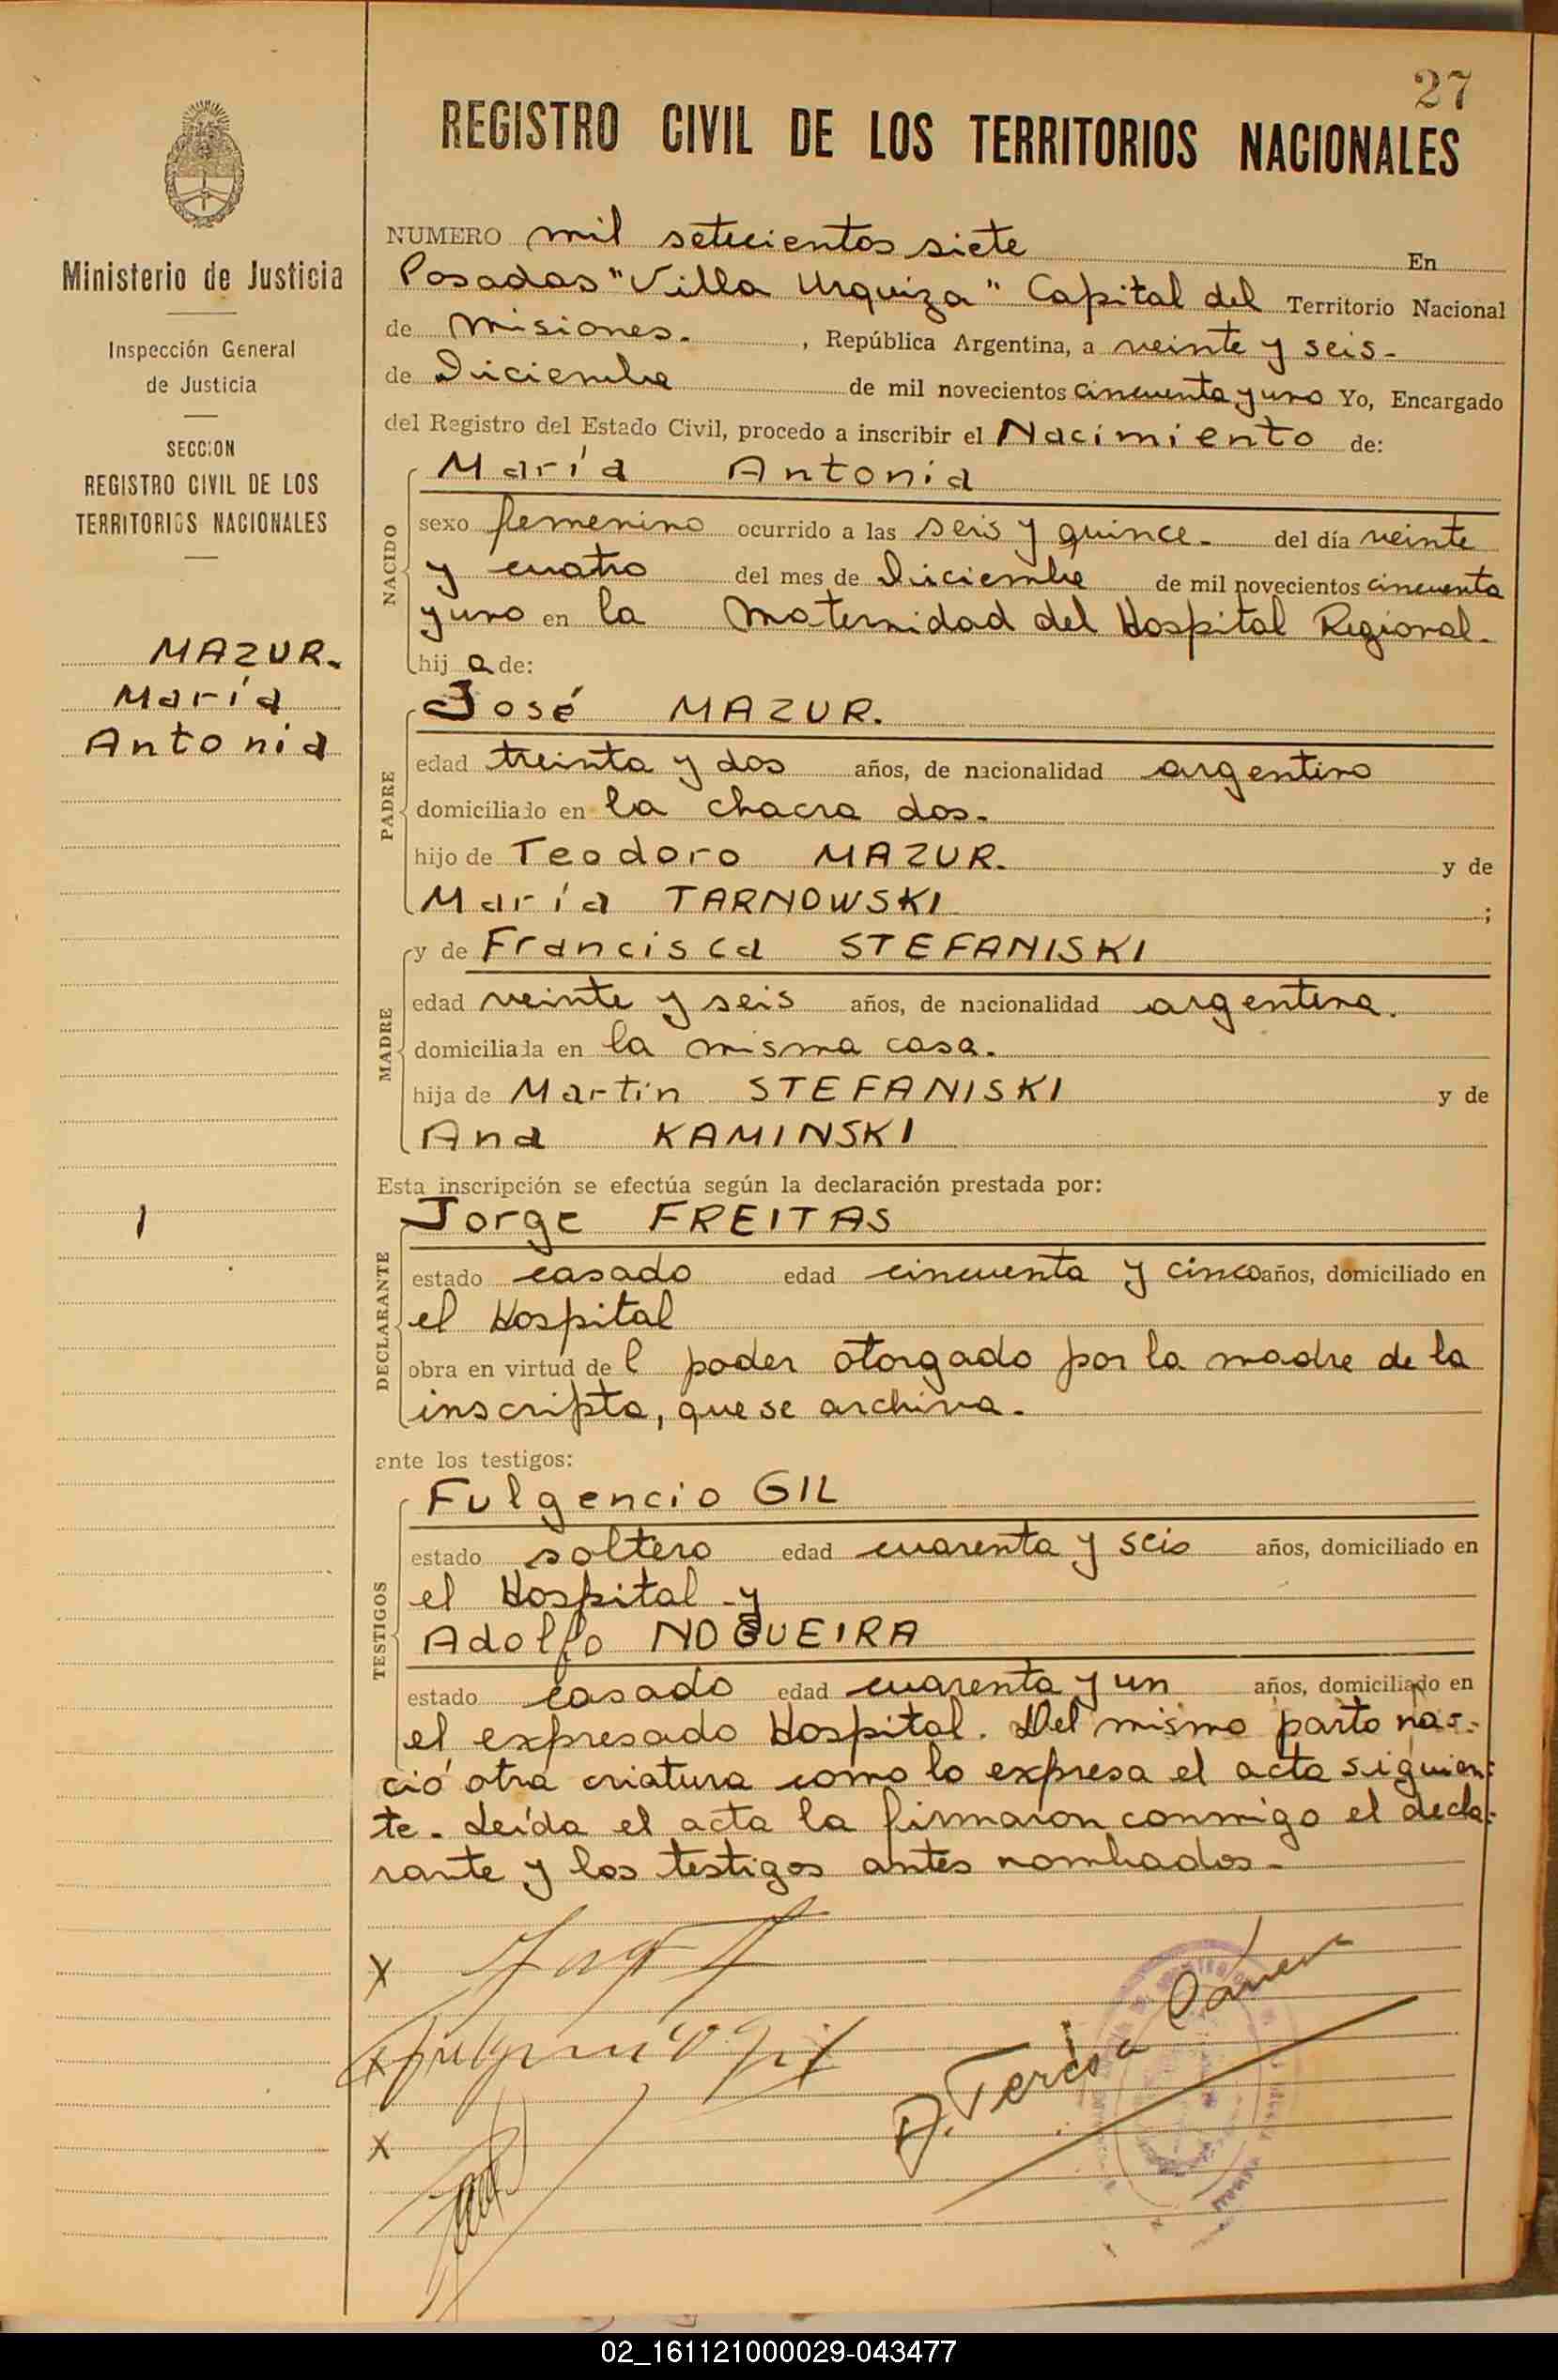 27
REGISTRO CIVIL DE LOS TERRITORIOS NACIONALES
Ministerio de Justicia
Inspección General
de Justicia
SECCION
REGISTRO CIVIL DE LOS
TERRITORIOS NACIONALES
MAZUR.
María
Antonia
NUMERO mil setecientos siete En
Posadas "Villa Urquiza" Capital del Territorio Nacional
de Misiones. , República Argentina, a veinte y seis-
de Diciembre de mil novecientos cincuenta y uno Yo, Encargado
del Registro del Estado Civil, procedo a inscribir el Nacimiento de:
NACIDO
María Antonia
sexo femenino ocurrido a las seis y quince- del día veinte
y cuatro del mes de Diciembre de mil novecientos cincuenta
y uno en la Maternidad del Hospital Regional-
hij a de:
PADRE
José MAZUR.
edad treinta y dos años, de nacionalidad argentino
domiciliado en la chacra dos-
hijo de Teodoro MAZUR. y de
María TARNOWSKI ;
MADRE
y de Francisca STEFANISKI
edad veinte y seis años, de nacionalidad argentina.
domiciliada en la misma casa.
hija de Martin STEFANISKI y de
Ana KAMINSKI
Esta inscripción se efectúa según la declaración prestada por:
DECLARANTE
Jorge FREITAS
estado casado edad cincuenta y cinco años, domiciliado en
el Hospital
obra en virtud de l poder otorgado por la madre de la
inscripta, que se archiva-
ante los testigos:
TESTIGOS
Fulgencio GIL
estado soltero edad cuarenta y seis años, domiciliado en
el Hospital - y
Adolfo NOGUEIRA
estado casado edad cuarenta y un años, domiciliado en
el expresado Hospital. Del mismo parto na-
ció otra criatura como lo expresa el acta siguien-
te. Leída el acta la firmaron conmigo el decla-
rante y los testigos antes nombrados-
x
x Fulgencio Gil
x
A. Teresa
02_161121000029-043477